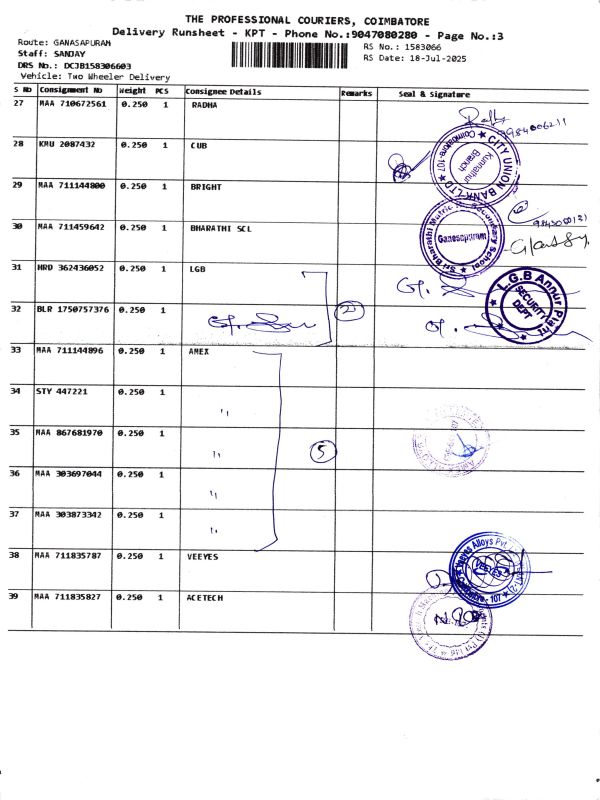 THE PROFESSIONAL COURIERS, COIMBATORE
Delivery Runsheet - KPT - Phone No.:9047080280 - Page No.:3
Route: GANASAPURAM
RS No.: 1583066
Staff: SANJAY
RS Date: 18-Jul-2025
DRS No.: DCJB158306603
Vehicle: Two Wheeler Delivery
S No Consignment No Weight PCS Consignee Details Remarks Seal & Signature
27 MAA 710672561 0.250 1 RADHA
28 KMU 2087432 0.250 1 CUB
CITY UNION BANK LTD
Kunnathur Branch
Coimbatore-107
29 MAA 711144800 0.250 1 BRIGHT
30 MAA 711459642 0.250 1 BHARATHI SCL
Sri Bharathi Matric Hr. Secondary School
Ganesapuram
31 HRD 362436052 0.250 1 LGB
32 BLR 1750757376 0.250 1
2
L.G.B Annur Plant
SECURITY DEPT
33 MAA 711144896 0.250 1 AMEX
34 STY 447221 0.250 1 "
35 MAA 867681970 0.250 1 "
5
36 MAA 303697044 0.250 1 "
37 MAA 303873342 0.250 1 "
38 MAA 711835787 0.250 1 VEEYES
Veeyes Alloys Pvt
VEEYES
Coimbatore - 107
39 MAA 711835827 0.250 1 ACETECH